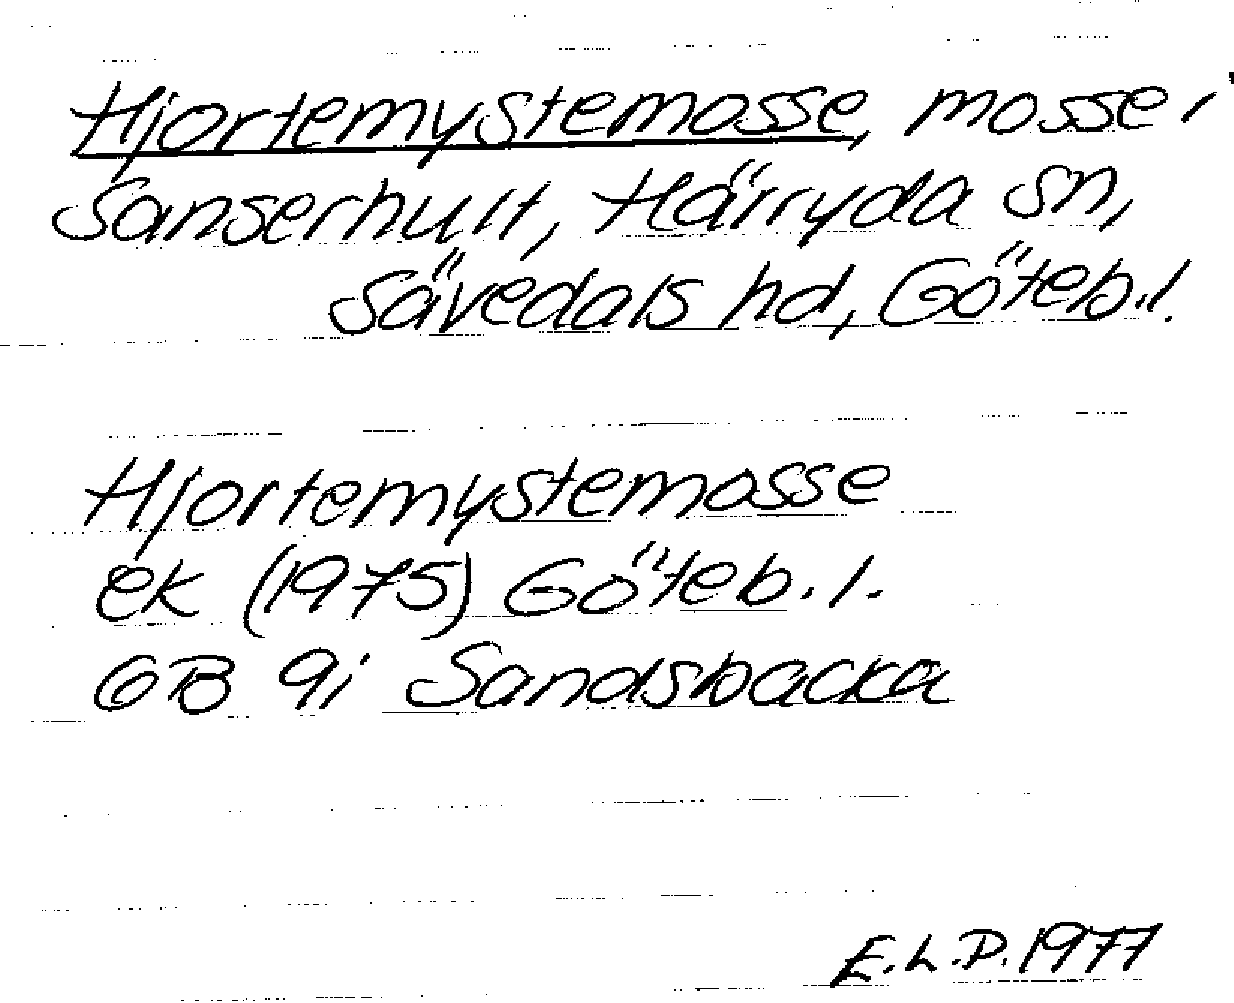 Hjortemystemosse, mosse i
Sanserhult, Härryda sn,
Sävedals hd, Göteb.l.
Hjortemystemosse
ek (1975) Göteb.l.
GB 9i Sandsbacka
E.L.P. 1977